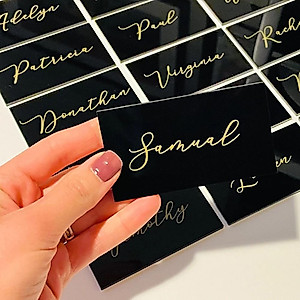 Adelyn
Paul
Rach
Patricia
Virginia
Donathan
Samual